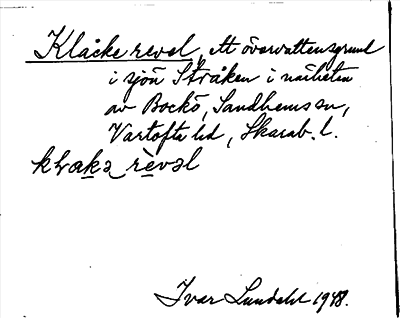 Klåcke revel, ett övervattensgrund
i sjön Stråken i närheten
av Bockö, Sandhems sn,
Vartofta hd, Skarab. l.
kɫваkə rèvəl
Ivar Lundahl 1948.